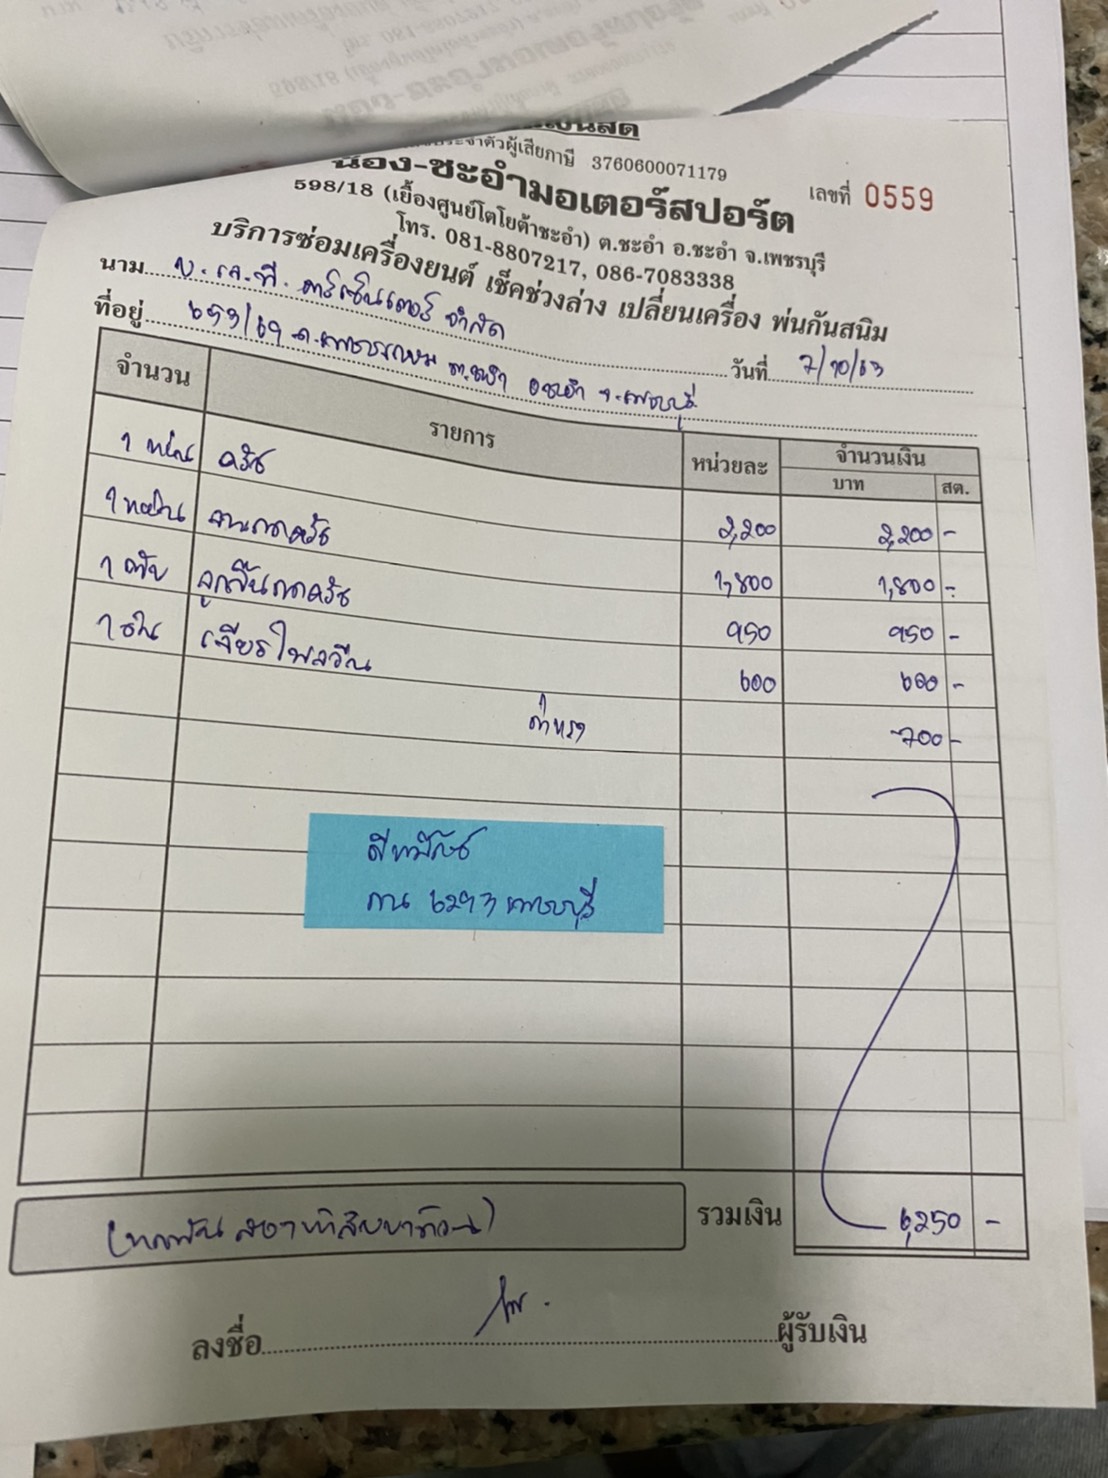 ผู้เสียภาษี 3760600071179
เลขที่ 0559
น้อง-ชะอำมอเตอร์สปอร์ต
598/18 (เยื้องศูนย์โตโยต้าชะอำ) ต.ชะอำ อ.ชะอำ จ.เพชรบุรี
โทร. 081-8807217, 086-7083338
บริการซ่อมเครื่องยนต์ เช็คช่วงล่าง เปลี่ยนเครื่อง พ่นกันสนิม
นาม บ. เค.ที. คาร์เซ็นเตอร์ จำกัด
วันที่ 7/10/63
ที่อยู่ 653/69 ถ.เพชรเกษม ต.ชะอำ อ.ชะอำ จ.เพชรบุรี
จำนวน รายการ หน่วยละ จำนวนเงิน
บาท สต.
1 แผ่น ครัช 2,200 2,200 -
1 แผ่น จานกดครัช 1,800 1,800 -
1 ตลับ ลูกปืนกดครัช 950 950 -
1 อัน เจียรไฟลวีล 600 600 -
ค่าแรง 700 -
กน 6293 เพชรบุรี
(หกพันสองร้อยห้าสิบบาทถ้วน)
รวมเงิน 6,250 -
ลงชื่อ ผู้รับเงิน